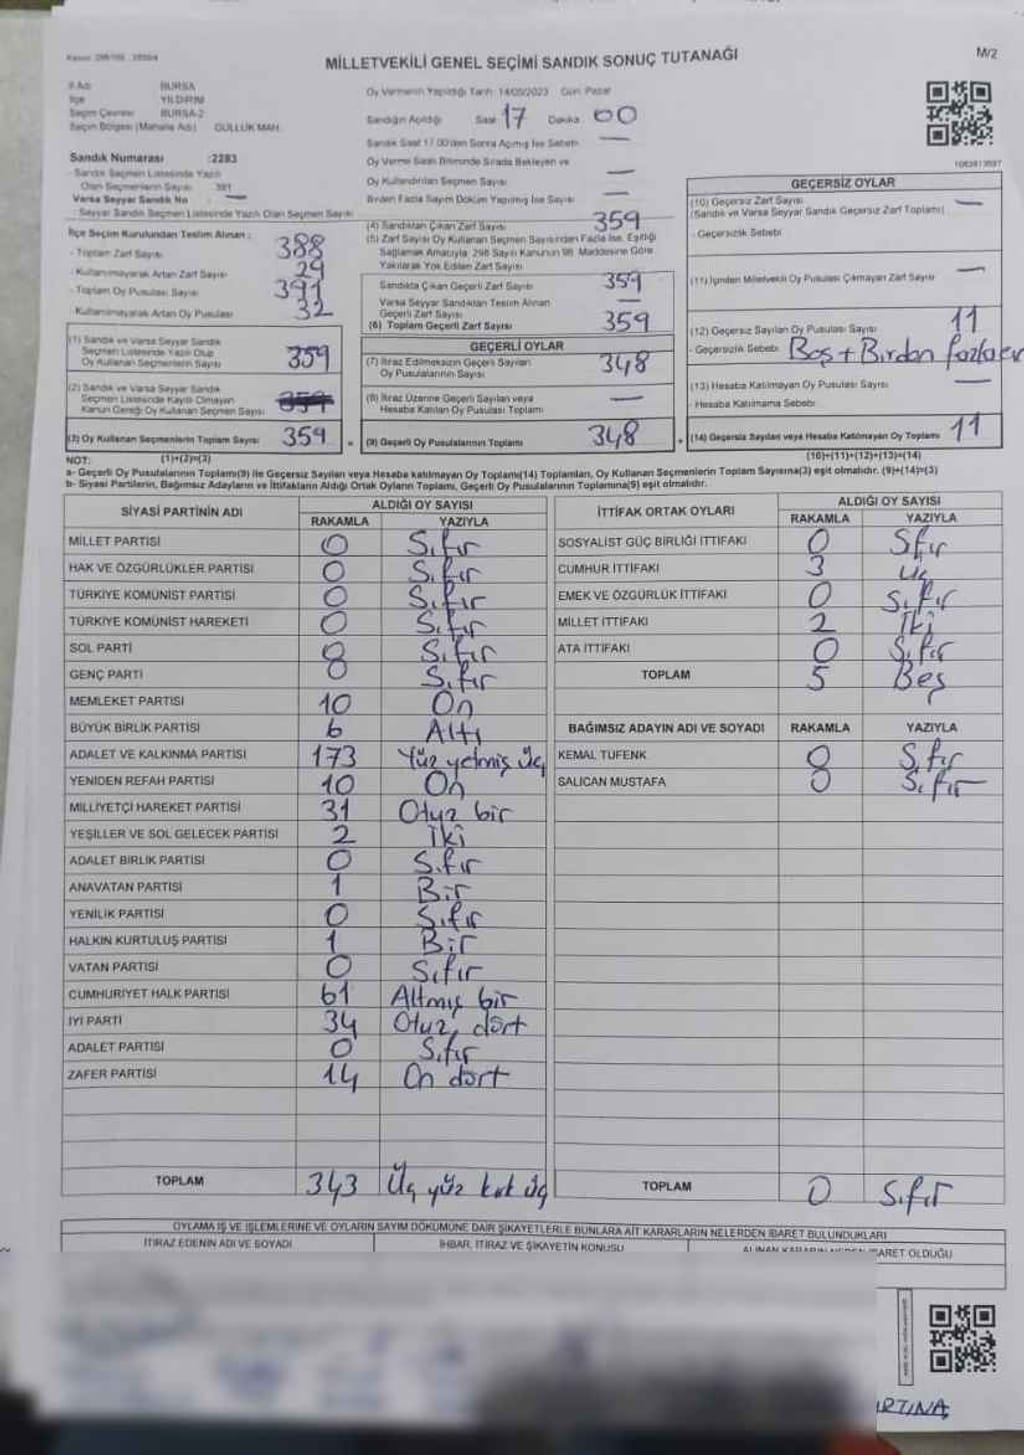 MİLLETVEKİLİ GENEL SEÇİMİ SANDIK SONUÇ TUTANAĞI
M/2
İl Adı BURSA
İlçe YILDIRIM
Seçim Çevresi BURSA-2
Seçim Bölgesi (Mahalle Adı) GÜLLÜK MAH.
Oy Vermenin Yapıldığı Tarih 14/05/2023 Gün Pazar
Sandığın Açıldığı Saat 17 Dakika 00
Sandık Saat 17.00'den Sonra Açılmış İse Sebebi —
Oy Verme Saati Bitiminde Sırada Bekleyen ve
Oy Kullandırılan Seçmen Sayısı —
Birden Fazla Sayım Döküm Yapılmış İse Sayısı —
Sandık Numarası :2283
- Sandık Seçmen Listesinde Yazılı
Olan Seçmenlerin Sayısı 381
Varsa Seyyar Sandık No —
- Seyyar Sandık Seçmen Listesinde Yazılı Olan Seçmen Sayısı
İlçe Seçim Kurulundan Teslim Alınan :
- Toplam Zarf Sayısı 388
- Kullanılmayarak Artan Zarf Sayısı 29
- Toplam Oy Pusulası Sayısı 391
- Kullanılmayarak Artan Oy Pusulası 32
(1) Sandık ve Varsa Seyyar Sandık
Seçmen Listesinde Yazılı Olup
Oy Kullanan Seçmenlerin Sayısı 359
(2) Sandık ve Varsa Seyyar Sandık
Seçmen Listesinde Kayıtlı Olmayan
Kanun Gereği Oy Kullanan Seçmen Sayısı
(3) Oy Kullanan Seçmenlerin Toplam Sayısı 359
(1)+(2)=(3)
(4) Sandıktan Çıkan Zarf Sayısı 359
(5) Zarf Sayısı Oy Kullanan Seçmen Sayısından Fazla İse, Eşitliği
Sağlamak Amacıyla 298 Sayılı Kanunun 98. Maddesine Göre
Yakılarak Yok Edilen Zarf Sayısı
Sandıkta Çıkan Geçerli Zarf Sayısı 359
Varsa Seyyar Sandıktan Teslim Alınan
Geçerli Zarf Sayısı —
(6) Toplam Geçerli Zarf Sayısı 359
GEÇERLİ OYLAR
(7) İtiraz Edilmeksizin Geçerli Sayılan
Oy Pusulalarının Sayısı 348
(8) İtiraz Üzerine Geçerli Sayılan veya
Hesaba Katılan Oy Pusulası Toplamı —
(9) Geçerli Oy Pusulalarının Toplamı 348
GEÇERSİZ OYLAR
(10) Geçersiz Zarf Sayısı —
(Sandık ve Varsa Seyyar Sandık Geçersiz Zarf Toplamı)
- Geçersizlik Sebebi
(11) İçinden Milletvekili Oy Pusulası Çıkmayan Zarf Sayısı —
(12) Geçersiz Sayılan Oy Pusulası Sayısı 11
- Geçersizlik Sebebi Boş + Birden fazla evet
(13) Hesaba Katılmayan Oy Pusulası Sayısı —
- Hesaba Katılmama Sebebi
(14) Geçersiz Sayılan veya Hesaba Katılmayan Oy Toplamı 11
(10)+(11)+(12)+(13)=(14)
NOT:
a- Geçerli Oy Pusulalarının Toplamı(9) ile Geçersiz Sayılan veya Hesaba katılmayan Oy Toplamı(14) Toplamları, Oy Kullanan Seçmenlerin Toplam Sayısına(3) eşit olmalıdır. (9)+(14)=(3)
b- Siyasi Partilerin, Bağımsız Adayların ve İttifakların Aldığı Ortak Oyların Toplamı, Geçerli Oy Pusulalarının Toplamına(9) eşit olmalıdır.
SİYASİ PARTİNİN ADI ALDIĞI OY SAYISI
RAKAMLA YAZIYLA
MİLLET PARTİSİ 0 Sıfır
HAK VE ÖZGÜRLÜKLER PARTİSİ 0 Sıfır
TÜRKİYE KOMÜNİST PARTİSİ 0 Sıfır
TÜRKİYE KOMÜNİST HAREKETİ 0 Sıfır
SOL PARTİ 0 Sıfır
GENÇ PARTİ 0 Sıfır
MEMLEKET PARTİSİ 10 On
BÜYÜK BİRLİK PARTİSİ 6 Altı
ADALET VE KALKINMA PARTİSİ 173 Yüz yetmiş üç
YENİDEN REFAH PARTİSİ 10 On
MİLLİYETÇİ HAREKET PARTİSİ 31 Otuz bir
YEŞİLLER VE SOL GELECEK PARTİSİ 2 İki
ADALET BİRLİK PARTİSİ 0 Sıfır
ANAVATAN PARTİSİ 1 Bir
YENİLİK PARTİSİ 0 Sıfır
HALKIN KURTULUŞ PARTİSİ 1 Bir
VATAN PARTİSİ 0 Sıfır
CUMHURİYET HALK PARTİSİ 61 Altmış bir
İYİ PARTİ 34 Otuz dört
ADALET PARTİSİ 0 Sıfır
ZAFER PARTİSİ 14 On dört
TOPLAM 343 Üç yüz kırk üç
İTTİFAK ORTAK OYLARI ALDIĞI OY SAYISI
RAKAMLA YAZIYLA
SOSYALİST GÜÇ BİRLİĞİ İTTİFAKI 0 Sıfır
CUMHUR İTTİFAKI 3 üç
EMEK VE ÖZGÜRLÜK İTTİFAKI 0 Sıfır
MİLLET İTTİFAKI 2 İki
ATA İTTİFAKI 0 Sıfır
TOPLAM 5 Beş
BAĞIMSIZ ADAYIN ADI VE SOYADI RAKAMLA YAZIYLA
KEMAL TÜFENK 0 Sıfır
SALİCAN MUSTAFA 0 Sıfır
TOPLAM 0 Sıfır
OYLAMA İŞ VE İŞLEMLERİNE VE OYLARIN SAYIM DÖKÜMÜNE DAİR ŞİKAYETLERLE BUNLARA AİT KARARLARIN NELERDEN İBARET BULUNDUKLARI
İTİRAZ EDENİN ADI VE SOYADI İHBAR, İTİRAZ VE ŞİKAYETİN KONUSU